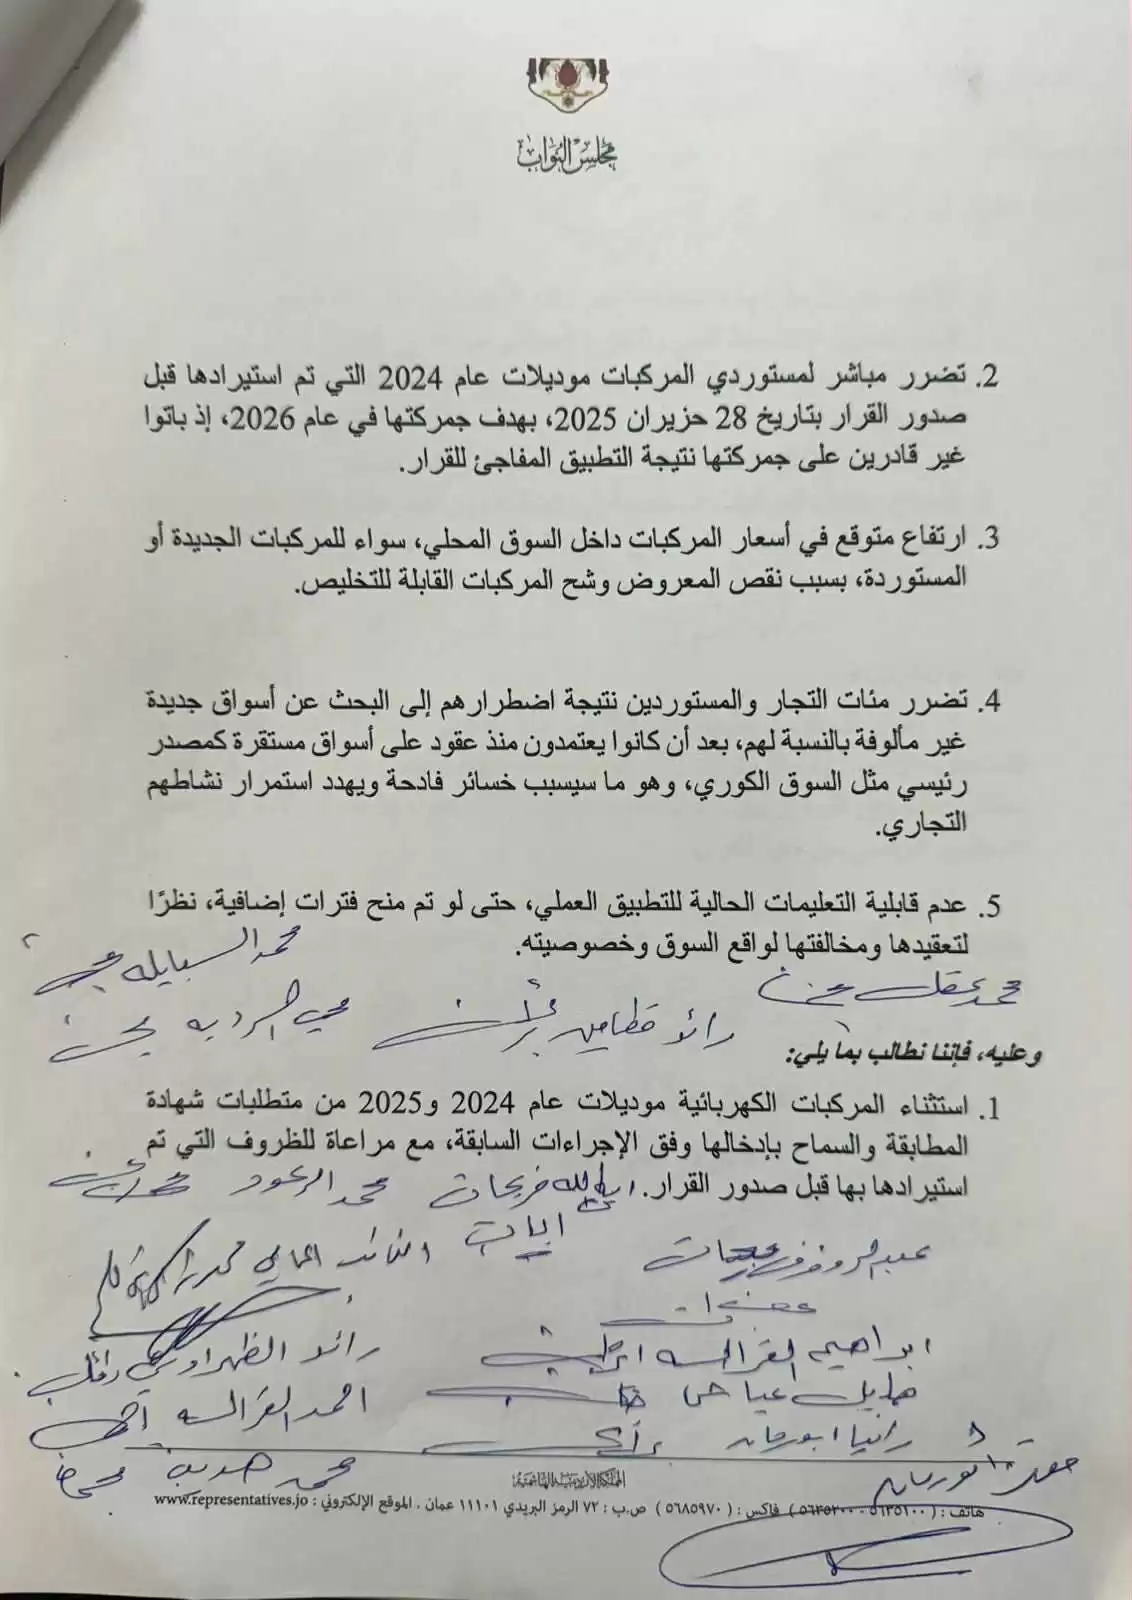 مجلس النواب
2. تضرر مباشر لمستوردي المركبات موديلات عام 2024 التي تم استيرادها قبل
صدور القرار بتاريخ 28 حزيران 2025، بهدف جمركتها في عام 2026، إذ باتوا
غير قادرين على جمركتها نتيجة التطبيق المفاجئ للقرار.
3. ارتفاع متوقع في أسعار المركبات داخل السوق المحلي، سواء للمركبات الجديدة أو
المستوردة، بسبب نقص المعروض وشح المركبات القابلة للتخليص.
4. تضرر مئات التجار والمستوردين نتيجة اضطرارهم إلى البحث عن أسواق جديدة
غير مألوفة بالنسبة لهم، بعد أن كانوا يعتمدون منذ عقود على أسواق مستقرة كمصدر
رئيسي مثل السوق الكوري، وهو ما سيسبب خسائر فادحة ويهدد استمرار نشاطهم
التجاري.
5. عدم قابلية التعليمات الحالية للتطبيق العملي، حتى لو تم منح فترات إضافية، نظرًا
لتعقيدها ومخالفتها لواقع السوق وخصوصيته.
محمد السبايله
محمد عقل
رائد قطامين
وعليه، فإننا نطالب بما يلي:
1. استثناء المركبات الكهربائية موديلات عام 2024 و2025 من متطلبات شهادة
المطابقة والسماح بإدخالها وفق الإجراءات السابقة، مع مراعاة للظروف التي تم
استيرادها بها قبل صدور القرار.
فريحات محمد الرعود
ابراهيم القرالسه
رائد الظهراوي
احمد القرالسه
رانيا ابورمان
محمد هديب
المملكة الأردنية الهاشمية
هاتف : ( ٥٦٣٥١٠٠ - ٥٦٣٥٢٠٠ ) فاكس : ( ٥٦٨٥٩٧٠ ) ص.ب : ٧٢ الرمز البريدي ١١١٠١ عمان . الموقع الإلكتروني : www.representatives.jo